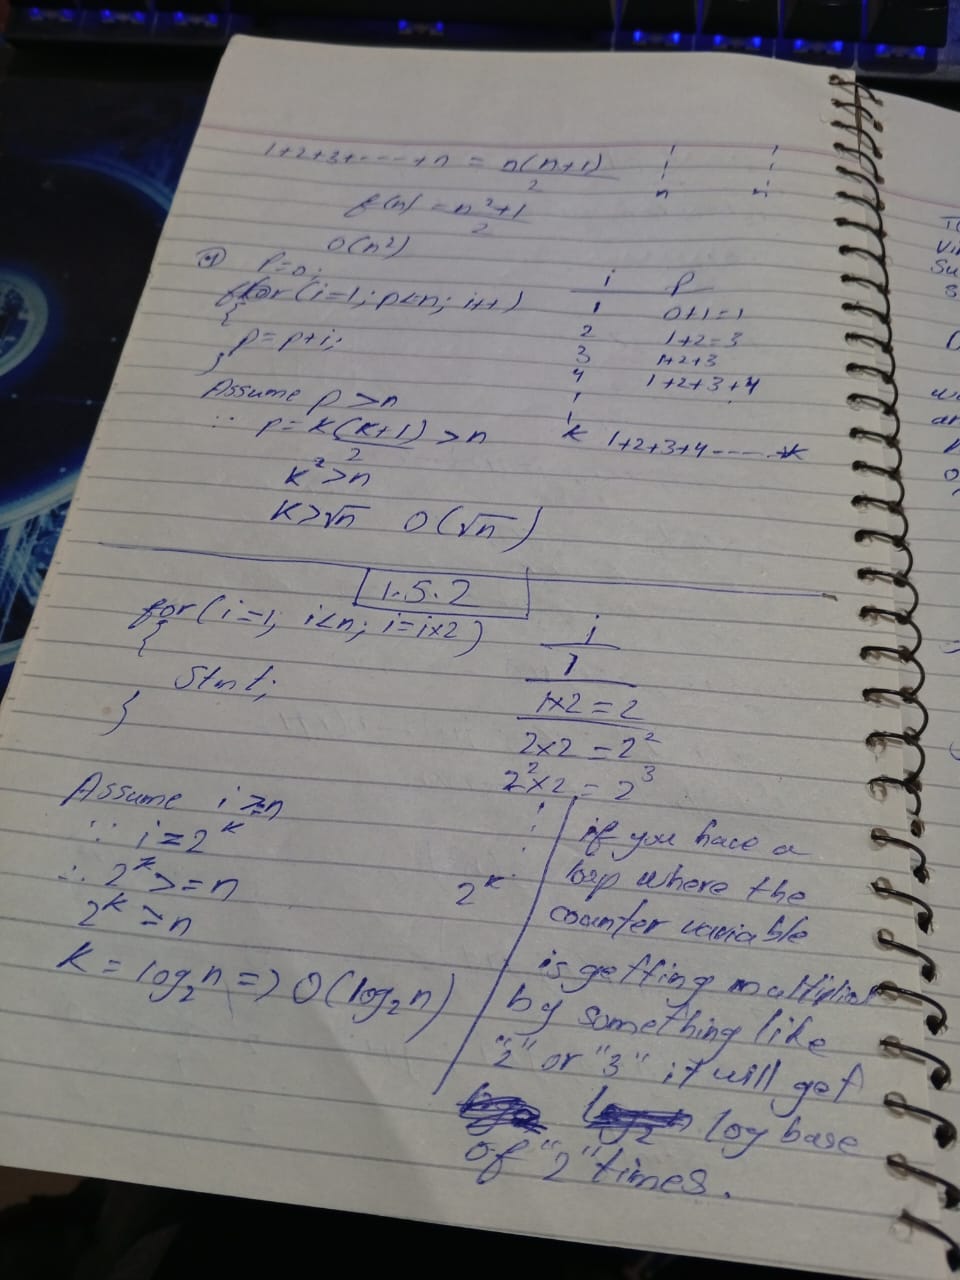 1+2+3+-----+n = n(n+1)/2
n n
f(n) = n²+1/2
O(n²)
4) P=0;
for(i=1; p<=n; i++)
{
p = p+i;
}
i p
1 0+1=1
2 1+2=3
3 1+2+3
4 1+2+3+4
k 1+2+3+4-----+k
Assume p>n
∵ p = k(k+1)/2 > n
k²>n
k>√n O(√n)
1.5.2
for(i=1; i<n; i=i×2)
{
Stmt;
}
i
1
1×2 = 2
2×2 = 2²
2²×2 = 2³
2^k
Assume i>=n
∵ i=2^k
∴ 2^k >= n
2^k = n
K = log₂n => O(log₂n)
if you have a
loop where the
counter variable
is getting
by something like
"2" or "3" it will get
log base
of "2" times.